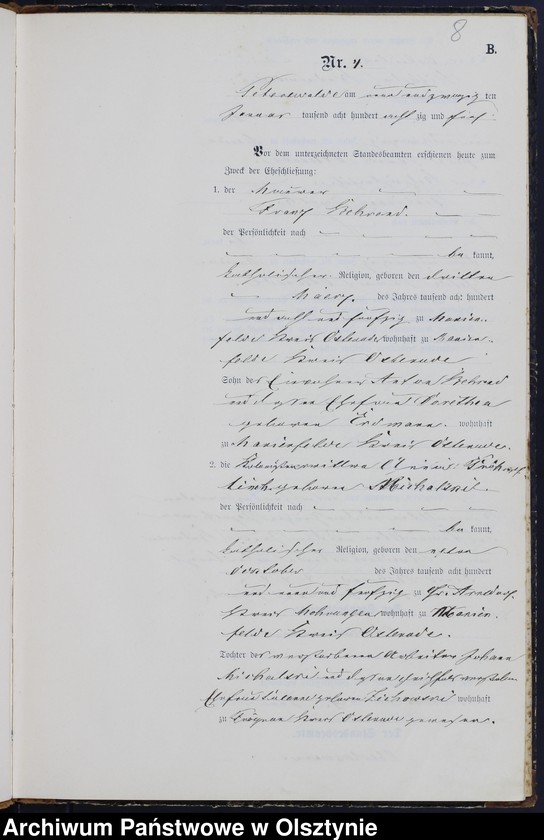 8
B.
Nr. 4.
Peterswalde am neun und zwanzig ten
Januar tausend acht hundert acht zig und fünf
Vor dem unterzeichneten Standesbeamten erschienen heute zum
Zweck der Eheschließung:
1. der Maurer
Franz Behrend.
der Persönlichkeit nach
be kannt,
katholischer Religion, geboren den dritten
März, des Jahres tausend acht hundert
und acht und fünfzig zu Marien-
felde Kreis Osterode, wohnhaft zu Marien-
felde Kreis Osterode
Sohn des Einwohners Anton Behrend
und dessen Ehefrau Dorothea
geborene Erdmann. wohnhaft
zu Marienfelde Kreis Osterode.
2. die
geborene Michalski
der Persönlichkeit nach
be kannt,
katholischer Religion, geboren den
October des Jahres tausend acht hundert
und neun und fünfzig zu Gr. Arnsdorf
Kreis Mohrungen, wohnhaft zu Marien-
felde Kreis Osterode.
Tochter des verstorbenen Arbeiters Johann
Michalski und dessen verstorbenen
Ehefrau geborene wohnhaft
zu Kreis Osterode gewesen.
Archiwum Państwowe w Olsztynie